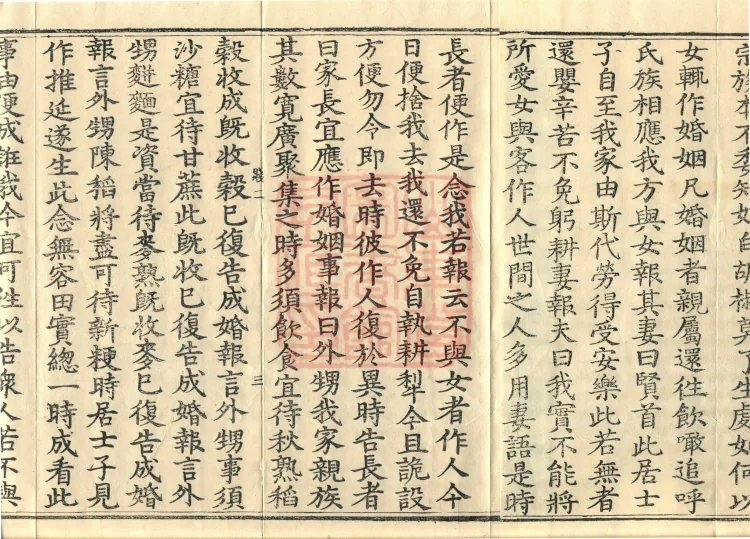 不委知
生處如何以
女輒作婚姻凡婚姻者親屬還往飲噉追呼
氏族相應我方與女報其妻曰賢首此居士
子自至我家由斯代勞得受安樂此若無者
還嬰辛苦不免躬耕妻報夫曰我實不能將
所愛女與客作人世間之人多用妻語是時
長者便作是念我若報云不與女者作人今
日便捨我去我還不免自執耕犂今且詭設
方便勿令即去時彼作人復於異時告長者
曰家長宜應作婚姻事報曰外甥我家親族
其數寬廣聚集之時多須飲食宜待秋熟稻
三
穀收成旣收穀已復告成婚報言外甥事須
沙糖宜待甘蔗此旣收已復告成婚報言外
甥麵是資當待麥熟旣收麥已復告成婚
報言外甥陳稻將盡可待新粳時居士子見
作推延遂生此念無容田實總一時成看此
事由便成誑我今宜可往以告衆人若不與